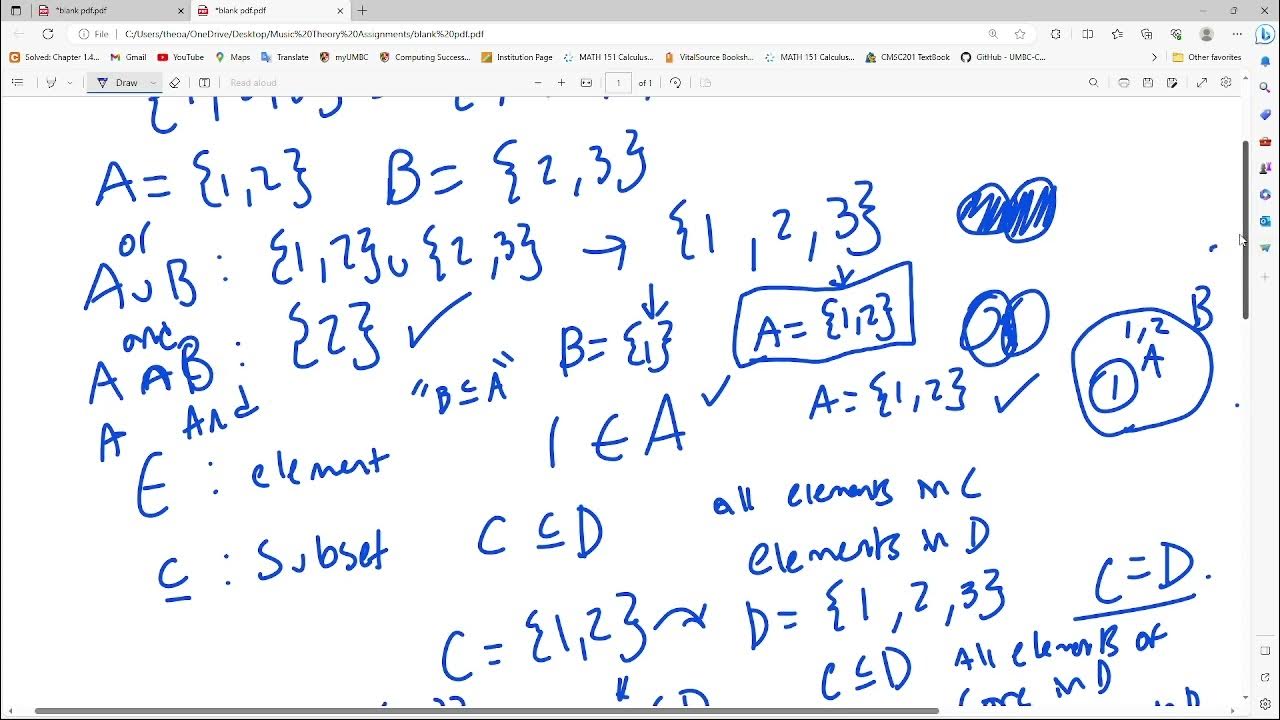 *blank pdf.pdf
*blank pdf.pdf
File
C:/Users/theoa/OneDrive/Desktop/Music%20Theory%20Assignments/blank%20pdf.pdf
Solved: Chapter 1.4...
Gmail
YouTube
Maps
Translate
myUMBC
Computing Success...
Institution Page
MATH 151 Calculus...
VitalSource Booksh...
MATH 151 Calculus...
CMSC201 TextBook
GitHub - UMBC-C...
Other favorites
Draw
Read aloud
1 of 1
A = {1,2} B = {2,3}
or
A∪B : {1,2}∪{2,3} → {1,2,3}
and
: {2} ✓
B = {1}
A = {1,2}
1,2
B
A
1
"B ⊆ A"
A = {1,2} ✓
A And
1 ∈ A ✓
E : element
⊆ : Subset
C ⊆ D
all elements in C
elements in D
C = D.
C = {1,2}
D = {1,2,3}
C ⊆ D
All elements of
C are in D